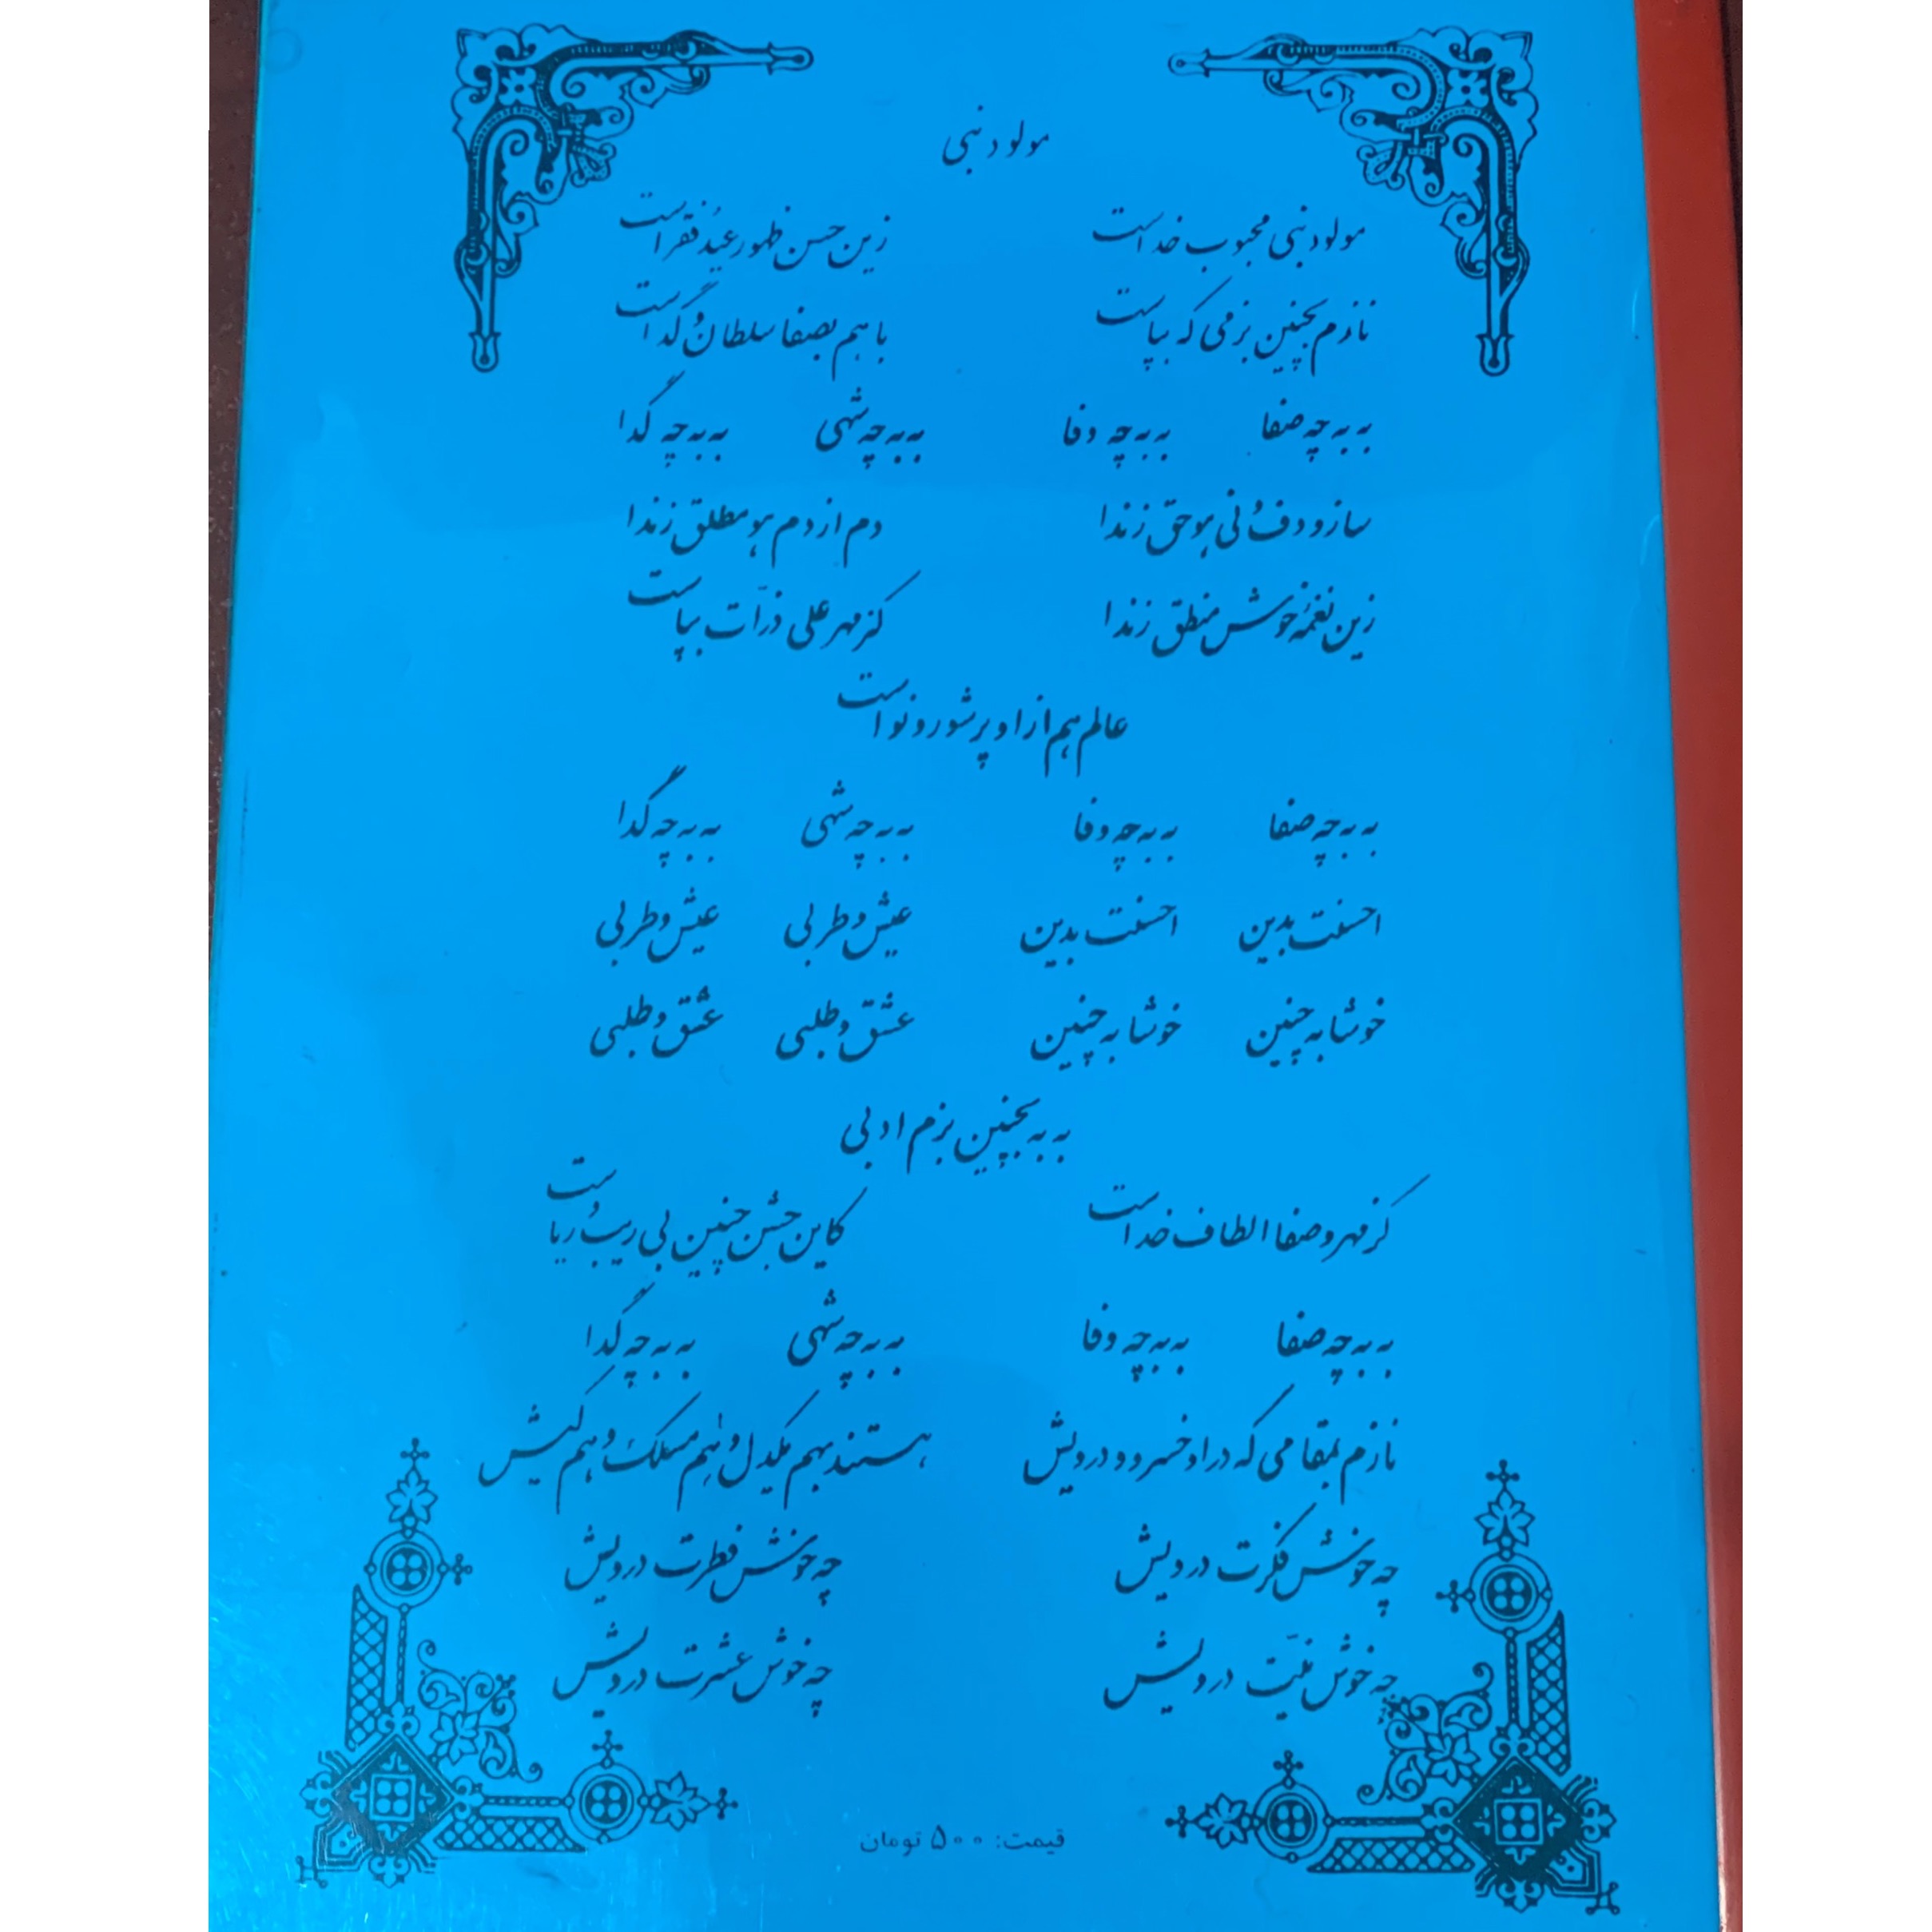 مولود نبی
مولود نبی محبوب خداست زین حسن ظهور عید فقراست
نازم بچنین بزمی که بپاست با هم بصفا سلطان و گداست
به به چه صفا به به چه وفا به به چه شهی به به چه گدا
ساز و دف و نی هو حق زندا دم از دم هو مطلق زندا
زین نغمه خوش منطق زندا کز مهر علی ذرّات بپاست
عالم هم از او پر شور و نواست
به به چه صفا به به چه وفا به به چه شهی به به چه گدا
احسنت بدین احسنت بدین عیش و طربی عیش و طربی
خوشا به چنین خوشا به چنین عشق و طلبی عشق و طلبی
به به بچنین بزم ادبی
کز مهر و صفا الطاف خداست کاین جشن چنین بی ریب و ریاست
به به چه صفا به به چه وفا به به چه شهی به به چه گدا
نازم بمقامی که در او خسرو و درویش هستند بهم یکدل و هم مسلک و هم کیش
چه خوش فکرت درویش چه خوش فطرت درویش
چه خوش نیّت درویش چه خوش عشرت درویش
قیمت: ۵۰۰ تومان